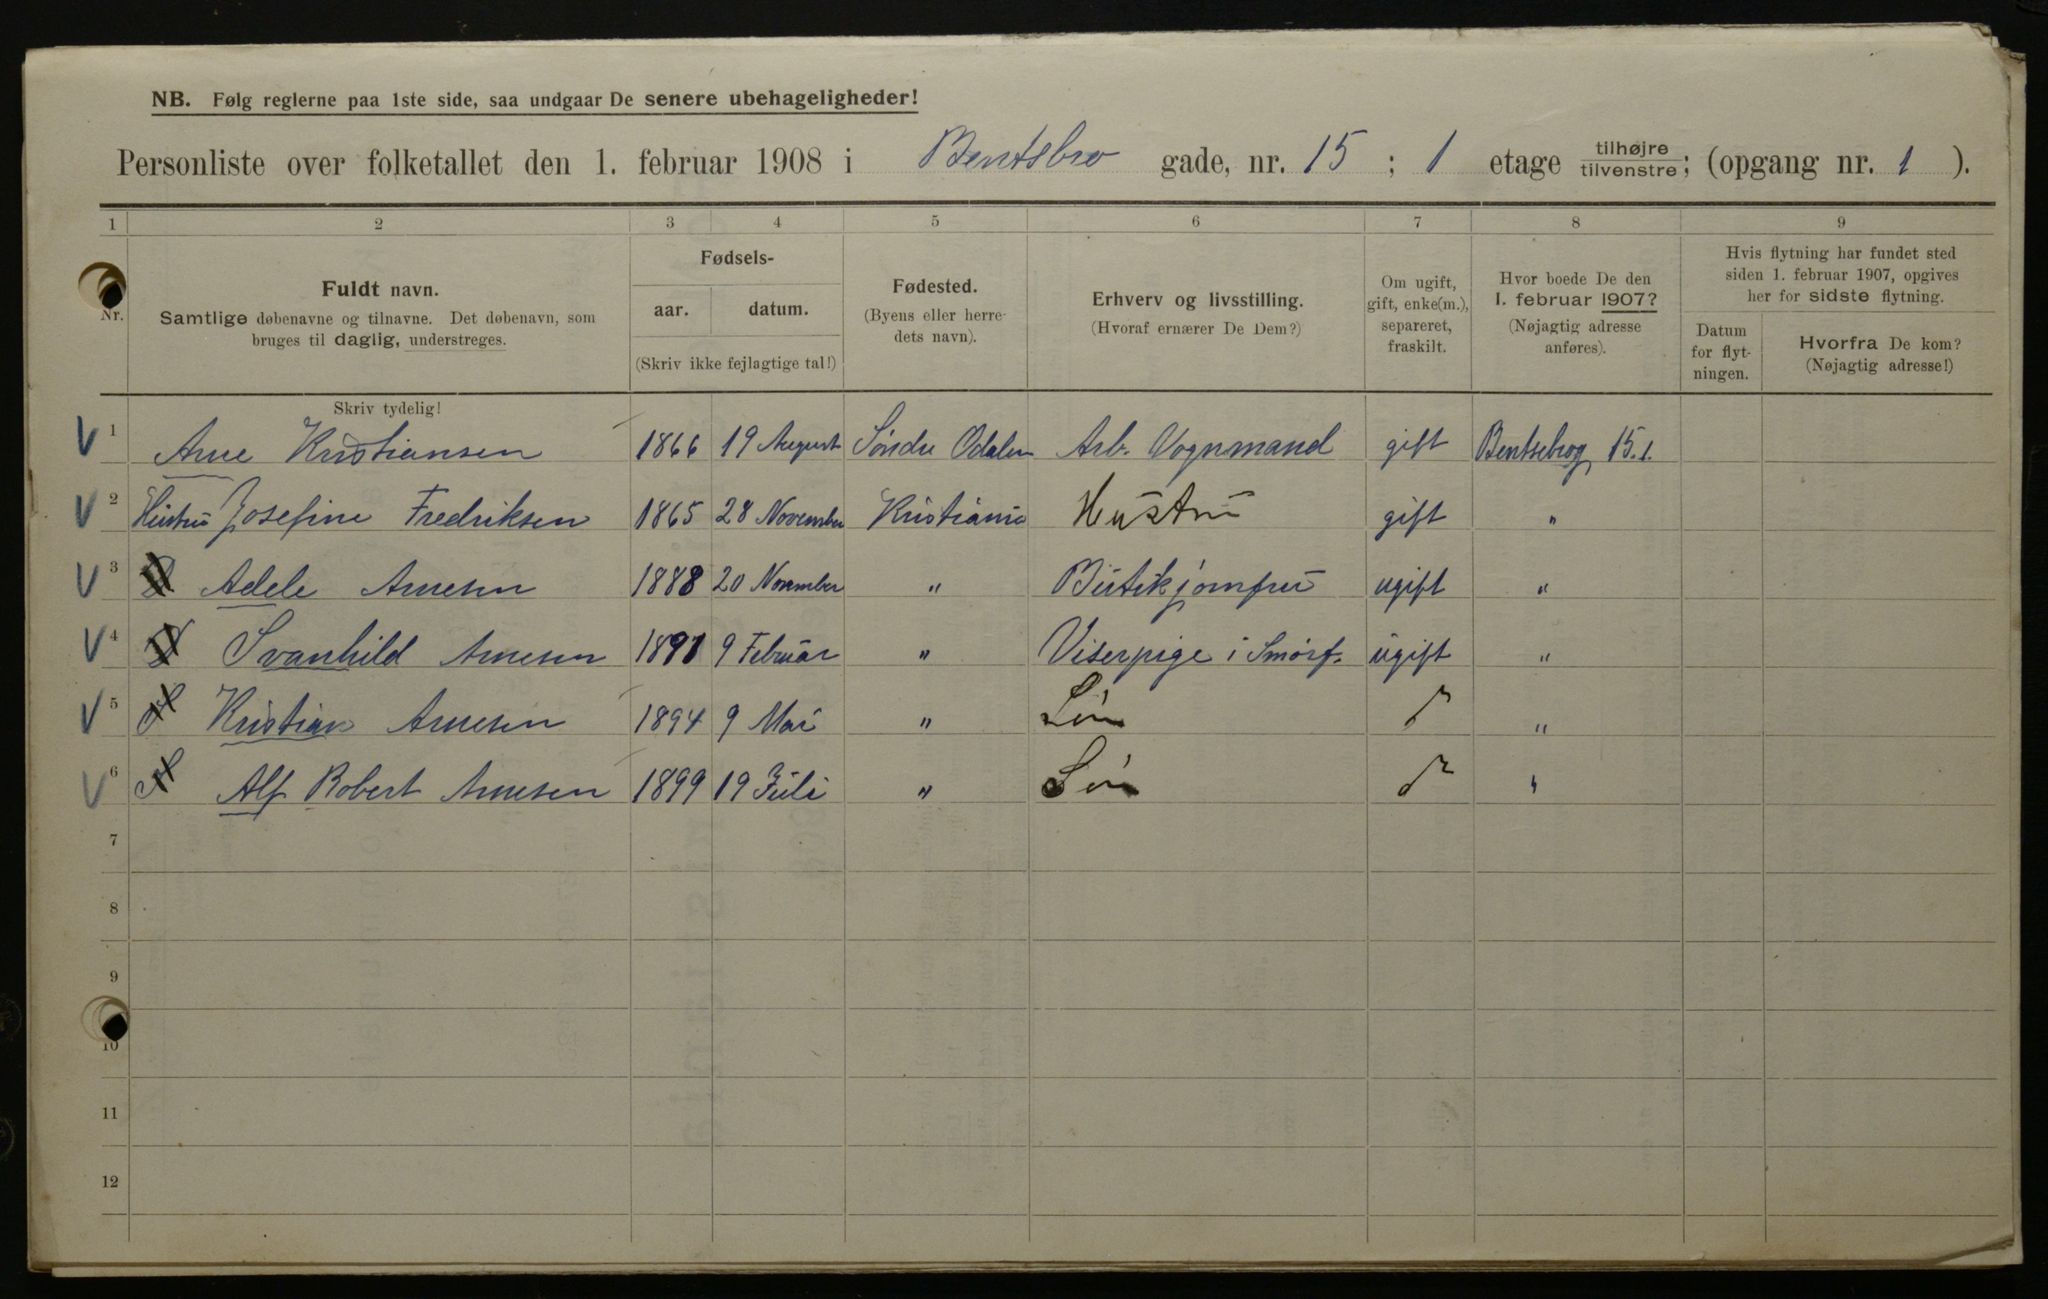 NB. Følg reglerne paa 1ste side, saa undgaar De senere ubehageligheder!
Personliste over folketallet den 1. februar 1908 i Bentsebro gade, nr. 15 ; 1 etage tilhøjre/tilvenstre; (opgang nr. 1 ).
1 2 3 4 5 6 7 8 9
Nr.
Fuldt navn.
Samtlige døbenavne og tilnavne. Det døbenavn, som
bruges til daglig, understreges.
Skriv tydelig!
Fødsels-
aar. datum.
(Skriv ikke fejlagtige tal!)
Fødested.
(Byens eller herre-
dets navn).
Erhverv og livsstilling.
(Hvoraf ernærer De Dem?)
Om ugift,
gift, enke(m.),
separeret,
fraskilt.
Hvor boede De den
1. februar 1907?
(Nøjagtig adresse
anføres).
Hvis flytning har fundet sted
siden 1. februar 1907, opgives
her for sidste flytning.
Datum
for flyt-
ningen.
Hvorfra De kom?
(Nøjagtig adresse!)
V 1 Arne Kristiansen 1866 19 August Söndre Odalen Arb. Vognmand gift Bentsebrog 15.1.
V 2 Hustru Josefine Fredriksen 1865 28 November Kristiania Hustru gift "
V 3 Adele Arnesen 1888 20 November " Butikjomfru ugift "
V 4 Svanhild Arnesen 1891 9 Februar " Viserpige i Smörf. ugift "
V 5 Kristian Arnesen 1894 9 Mai " Sön "
V 6 Alf Robert Arnesen 1899 19 Juli " Sön "
7
8
9
10
11
12